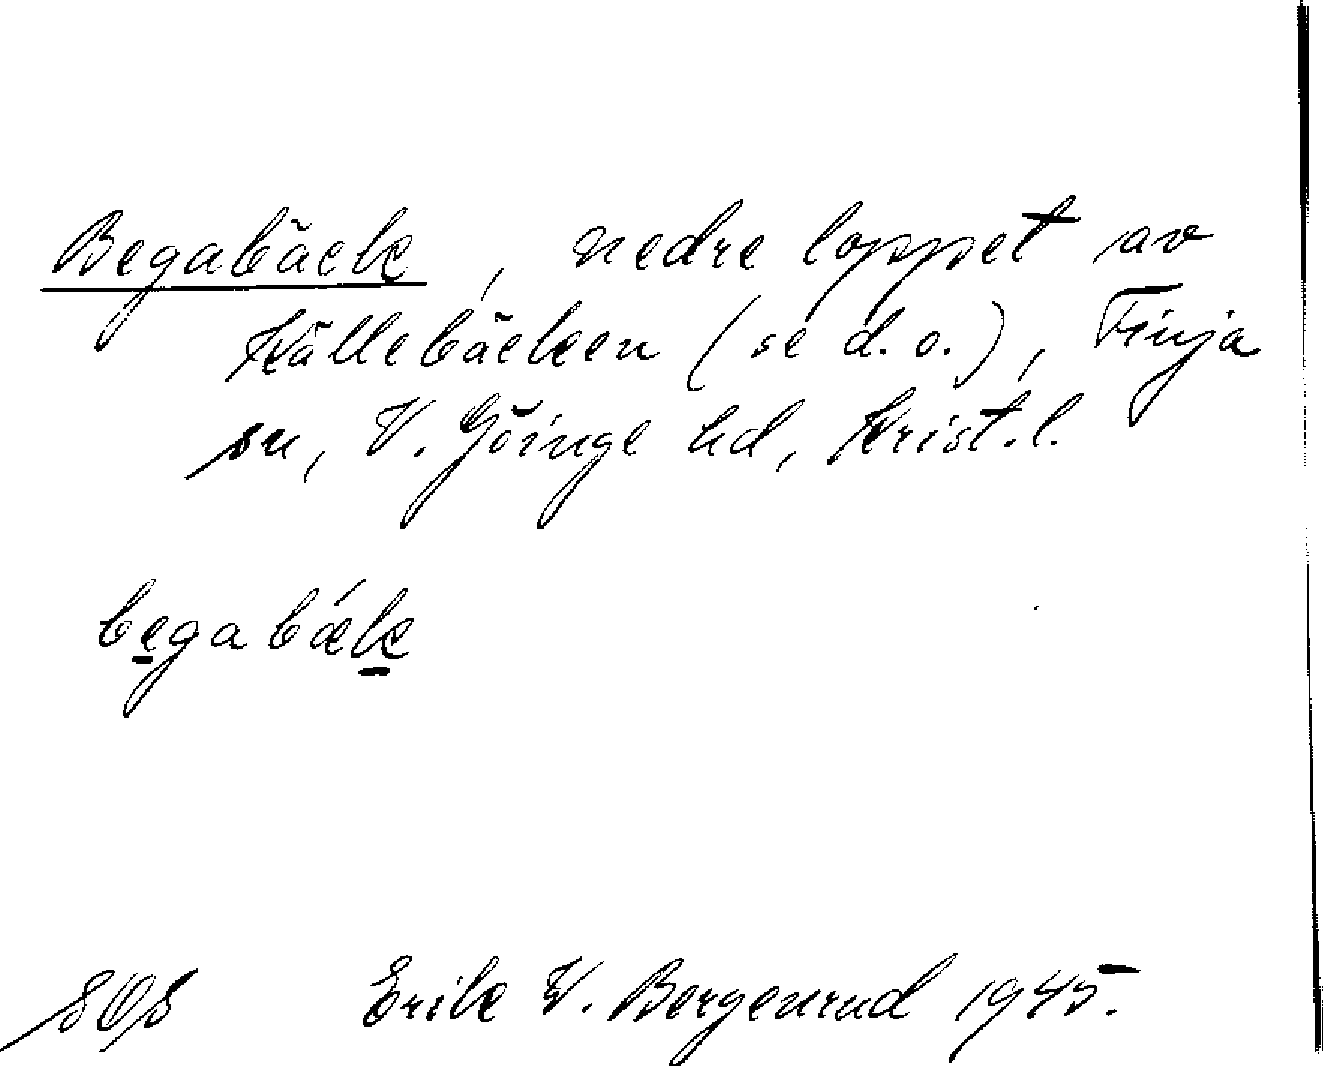 Begabäck, nedre loppet av
Källebäcken (se d. o.), Finja
sn, V. Göinge hd, Krist. l.
begabæk
SOS Erik W. Bergenrud 1945.